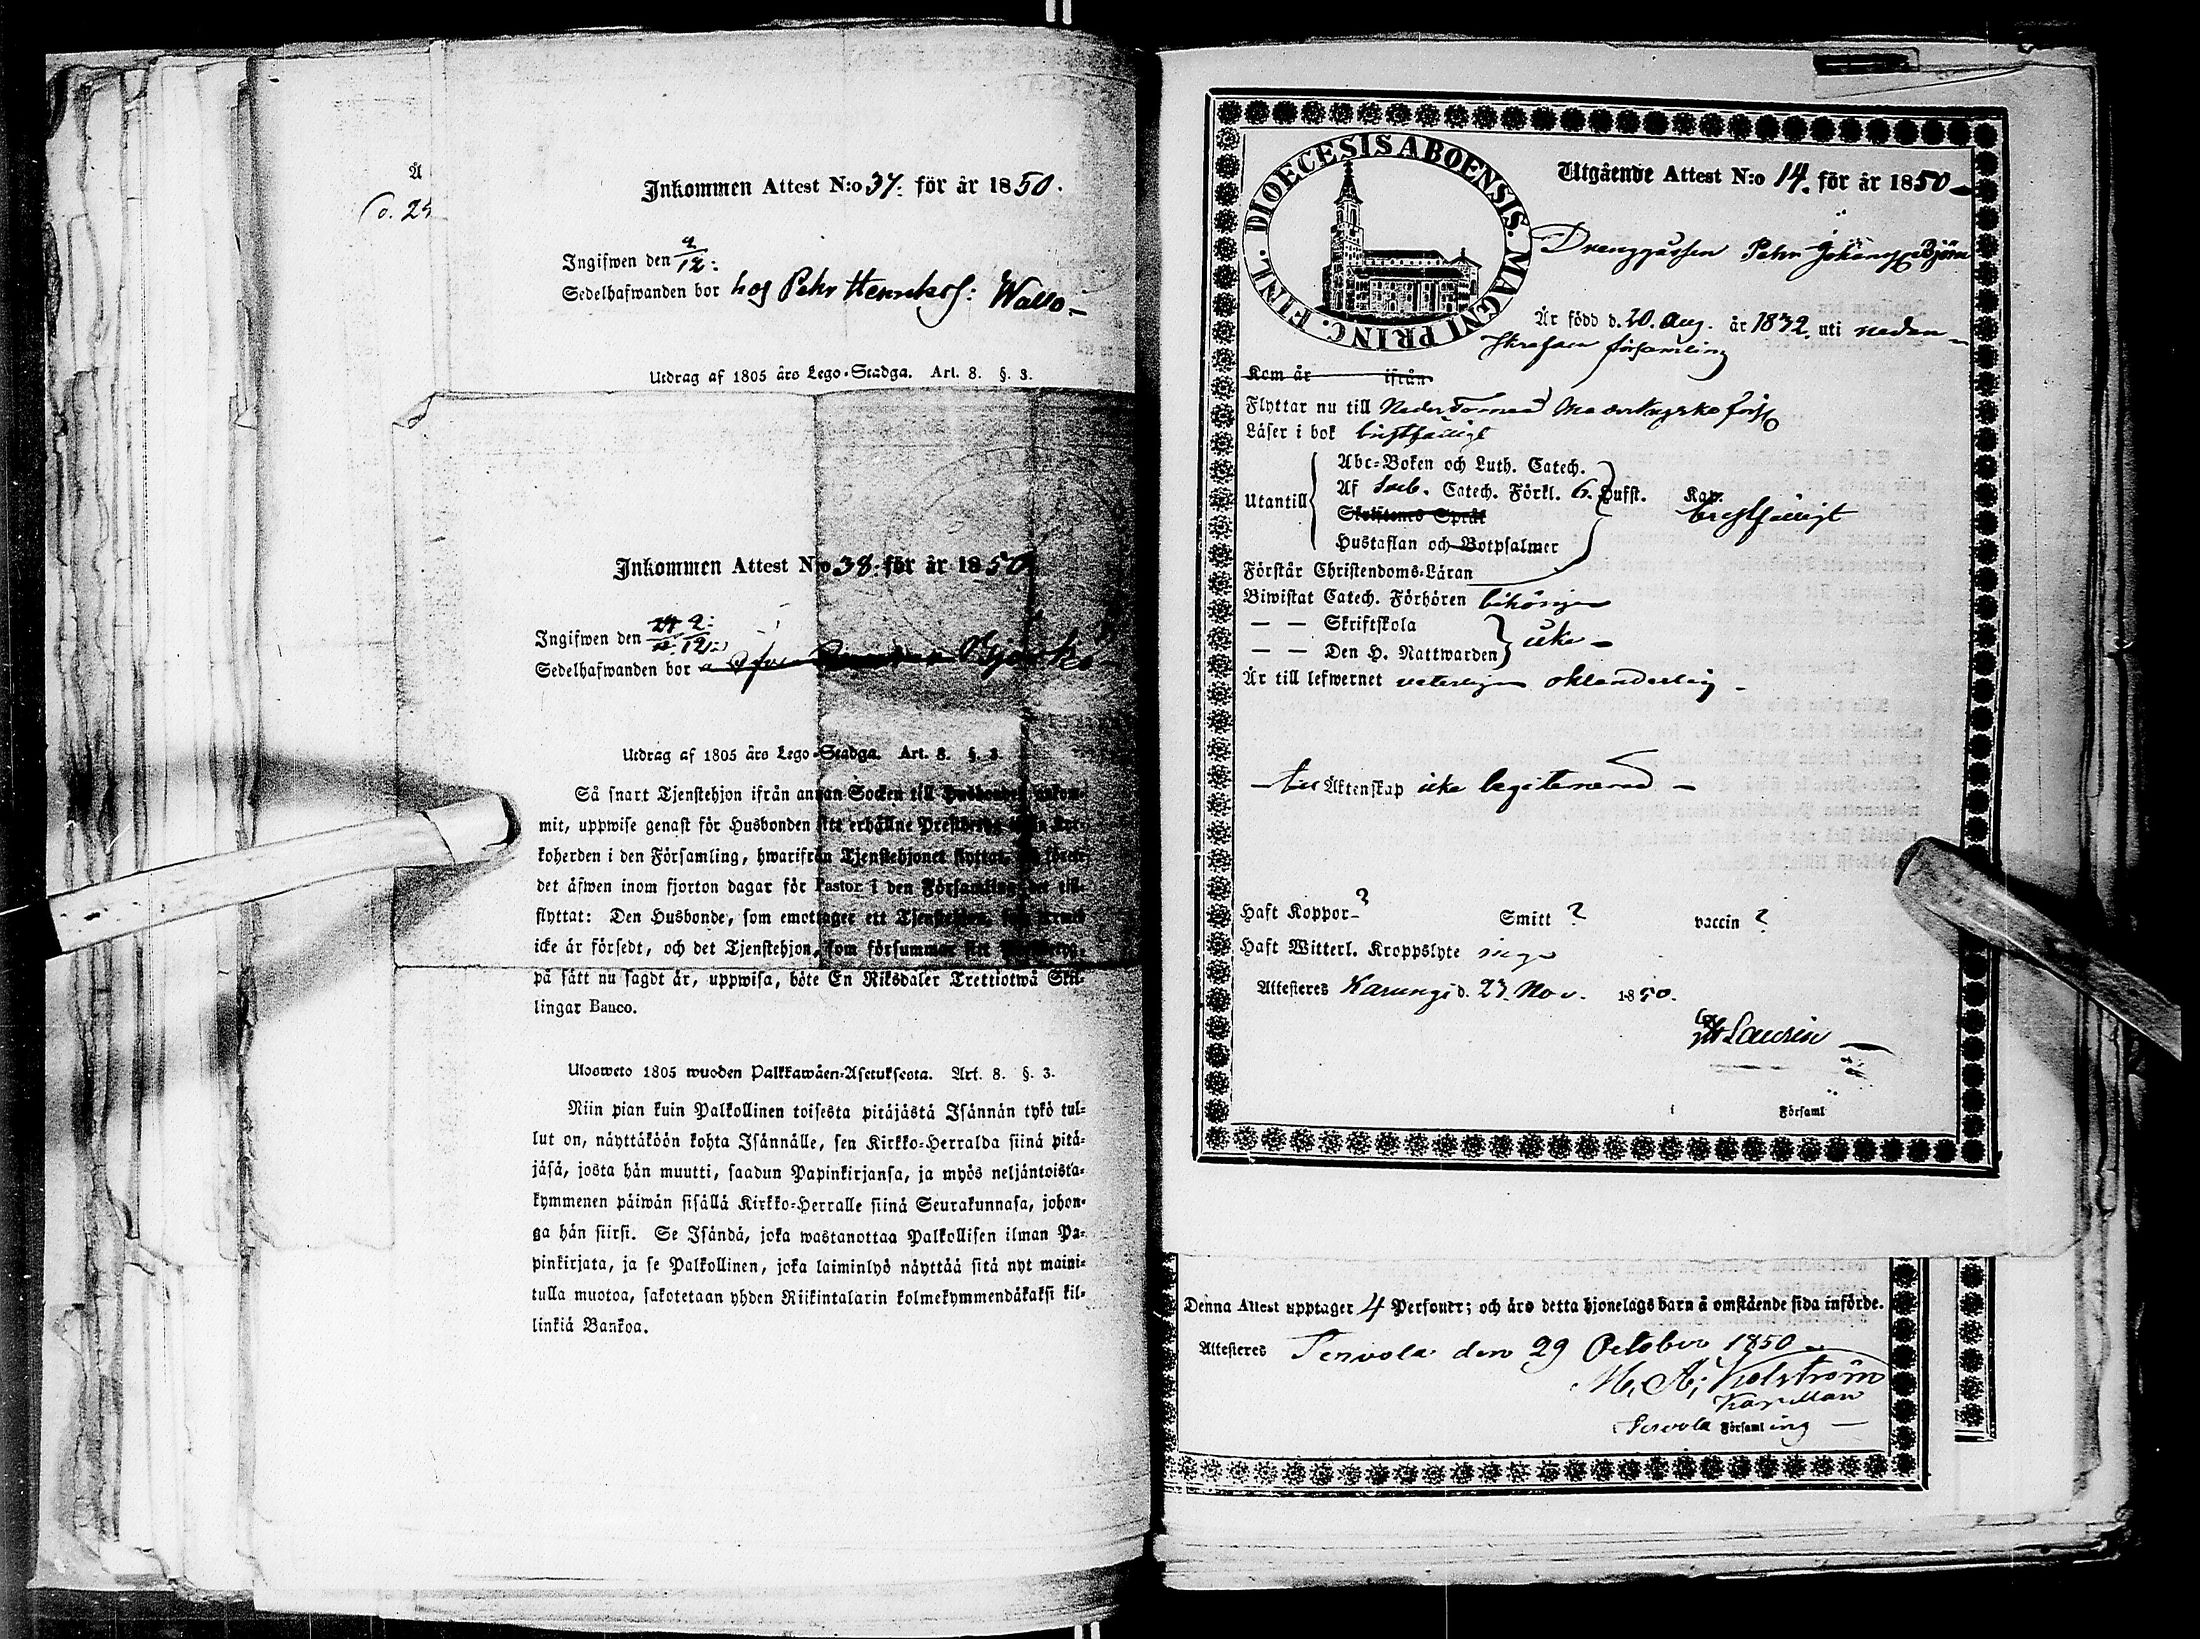 Å
Inkommen Attest N:o 37. för år 1850.
Ingifwen den 9/12:
Sedelhafwanden bor hos Pehr Henriks: Wallo
Utdrag af 1805 års Lego-Stadga. Art. 8. §. 3.
Inkommen Attest N:o 38. för år 1850
Ingifwen den 9/12:
Sedelhafwanden bor
Utdrag af 1805 års Lego-Stadga. Art. 8. §. 3.
Så snart Tjenstehjon ifrån annan Socken till Husbonden ankom-
mit, uppwise genast för Husbonden sitt erhållne Prestbetyg
koherden i den Församling, hwarifrån Tjenstehjonet flyttat,
det äfwen inom fjorton dagar för Pastor i den Församling det till-
flyttat: Den Husbonde, som emottager ett Tjenstehjon,
icke är försedt, och det Tjenstehjon, som försummar sitt
på sätt nu sagdt är, uppwisa, böte En Riksdaler Trettiotwå Skil-
lingar Banco.
Ulosweto 1805 wuoden Palkkawäen-Asetuksesta. Art. 8. §. 3.
Niin pian kuin Palkollinen toisesta pitäjästä Isännän tykö tul-
lut on, näyttäköön kohta Isännälle, sen Kirkko-Herralda siinä pitä-
jäsä, josta hän muutti, saadun Papinkirjansa, ja myös neljäntoista-
kymmenen päiwän sisällä Kirkko-Herralle siinä Seurakunnasa, johon-
ga hän siirsi. Se Isändä, joka wastanottaa Palkollisen ilman Pa-
pinkirjata, ja se Palkollinen, joka laiminlyö näyttää sitä nyt maini-
tulla muotoa, sakotetaan yhden Riikintalarin kolmekymmendäkaksi kil-
linkiä Bankoa.
DIOECESIS ABOENSIS. MAGNI PRINC. FINL.
Utgående Attest N:o 14. för år 1850
Drenggåssen Pehr Johansson Björn
Är född d. 20. Aug. år 1832. uti nedan-
skrefven församling
Kom år ifrån
Flyttar nu till Neder Torneå Moderkyrko förs
Läser i bok bristfälligt
Utantill
Abc-Boken och Luth. Catech.
Af Sveb. Catech. Förkl. 6. Hufst. Kap.
Skriftenes Språk bristfälligt
Hustaflan och Botpsalmer
Förstår Christendoms-Läran
Biwistat Catech. Förhören behörigen
— — Skriftskola
— — Den H. Nattwarden icke
Är till lefwernet veterligen oklanderlig
till Äktenskap icke legitimerad
Haft Koppor ? Smitt ? vaccin ?
Haft Witterl. Kroppslyte inga
Attesteres Karungi d. 23. Nov. 1850.
Laurin
Församl
Denna Attest upptager 4 Personer; och äro detta hjonelags barn å omstående sida införde.
Attesteres Tervola den 29 October 1850
M. A. Holström
Kapellan
Tervola Församling